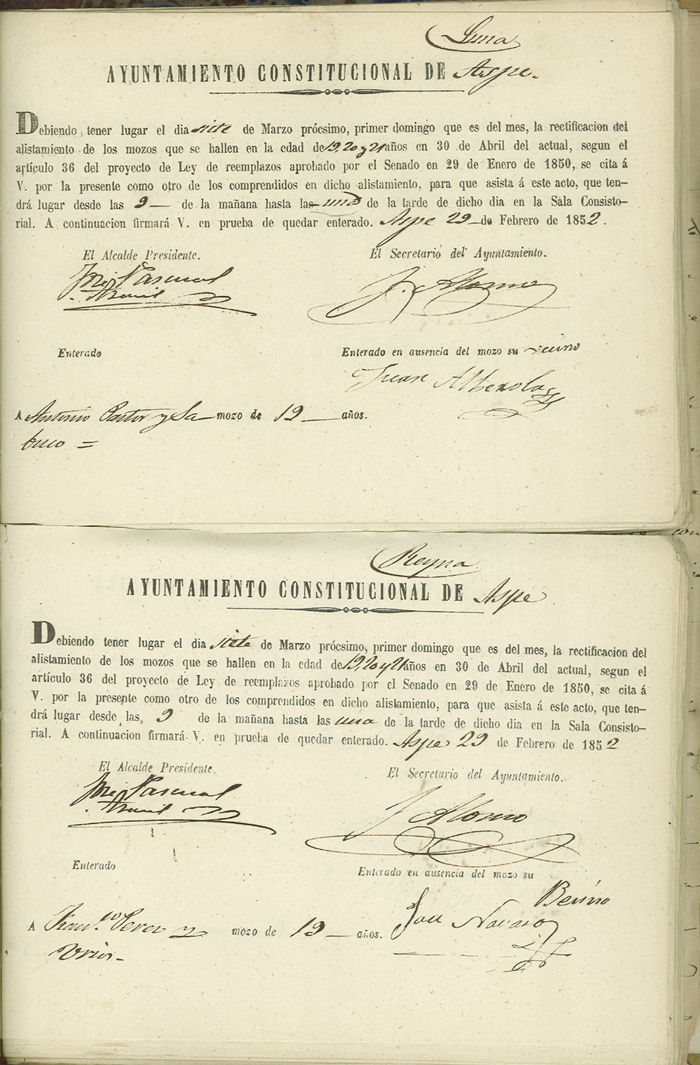 Luna
AYUNTAMIENTO CONSTITUCIONAL DE Aspe.
Debiendo tener lugar el dia siete de Marzo prócsimo, primer domingo que es del mes, la rectificacion del
alistamiento de los mozos que se hallen en la edad de 19, 20 y 21 años en 30 de Abril del actual, segun el
artículo 36 del proyecto de Ley de reemplazos aprobado por el Senado en 29 de Enero de 1850, se cita á
V. por la presente como otro de los comprendidos en dicho alistamiento, para que asista á este acto, que ten-
drá lugar desde las 9 de la mañana hasta las una de la tarde de dicho dia en la Sala Consisto-
rial. A continuacion firmará V. en prueba de quedar enterado. Aspe 29 de Febrero de 1852.
El Alcalde Presidente. El Secretario del Ayuntamiento.
José Pascual J. Alonso
Enterado Enterado en ausencia del mozo su vecino
Juan Alberola
A Antonio Pastor y Sa- mozo de 19 años.
Reyna
AYUNTAMIENTO CONSTITUCIONAL DE Aspe
Debiendo tener lugar el dia siete de Marzo prócsimo, primer domingo que es del mes, la rectificacion del
alistamiento de los mozos que se hallen en la edad de 19, 20 y 21 años en 30 de Abril del actual, segun el
artículo 36 del proyecto de Ley de reemplazos aprobado por el Senado en 29 de Enero de 1850, se cita á
V. por la presente como otro de los comprendidos en dicho alistamiento, para que asista á este acto, que ten-
drá lugar desde las 9 de la mañana hasta las una de la tarde de dicho dia en la Sala Consisto-
rial. A continuacion firmará V. en prueba de quedar enterado. Aspe 29 de Febrero de 1852
El Alcalde Presidente. El Secretario del Ayuntamiento.
José Pascual J Alonso
Enterado Enterado en ausencia del mozo su
A Fran.co Perez y mozo de 19 años. José Navarro